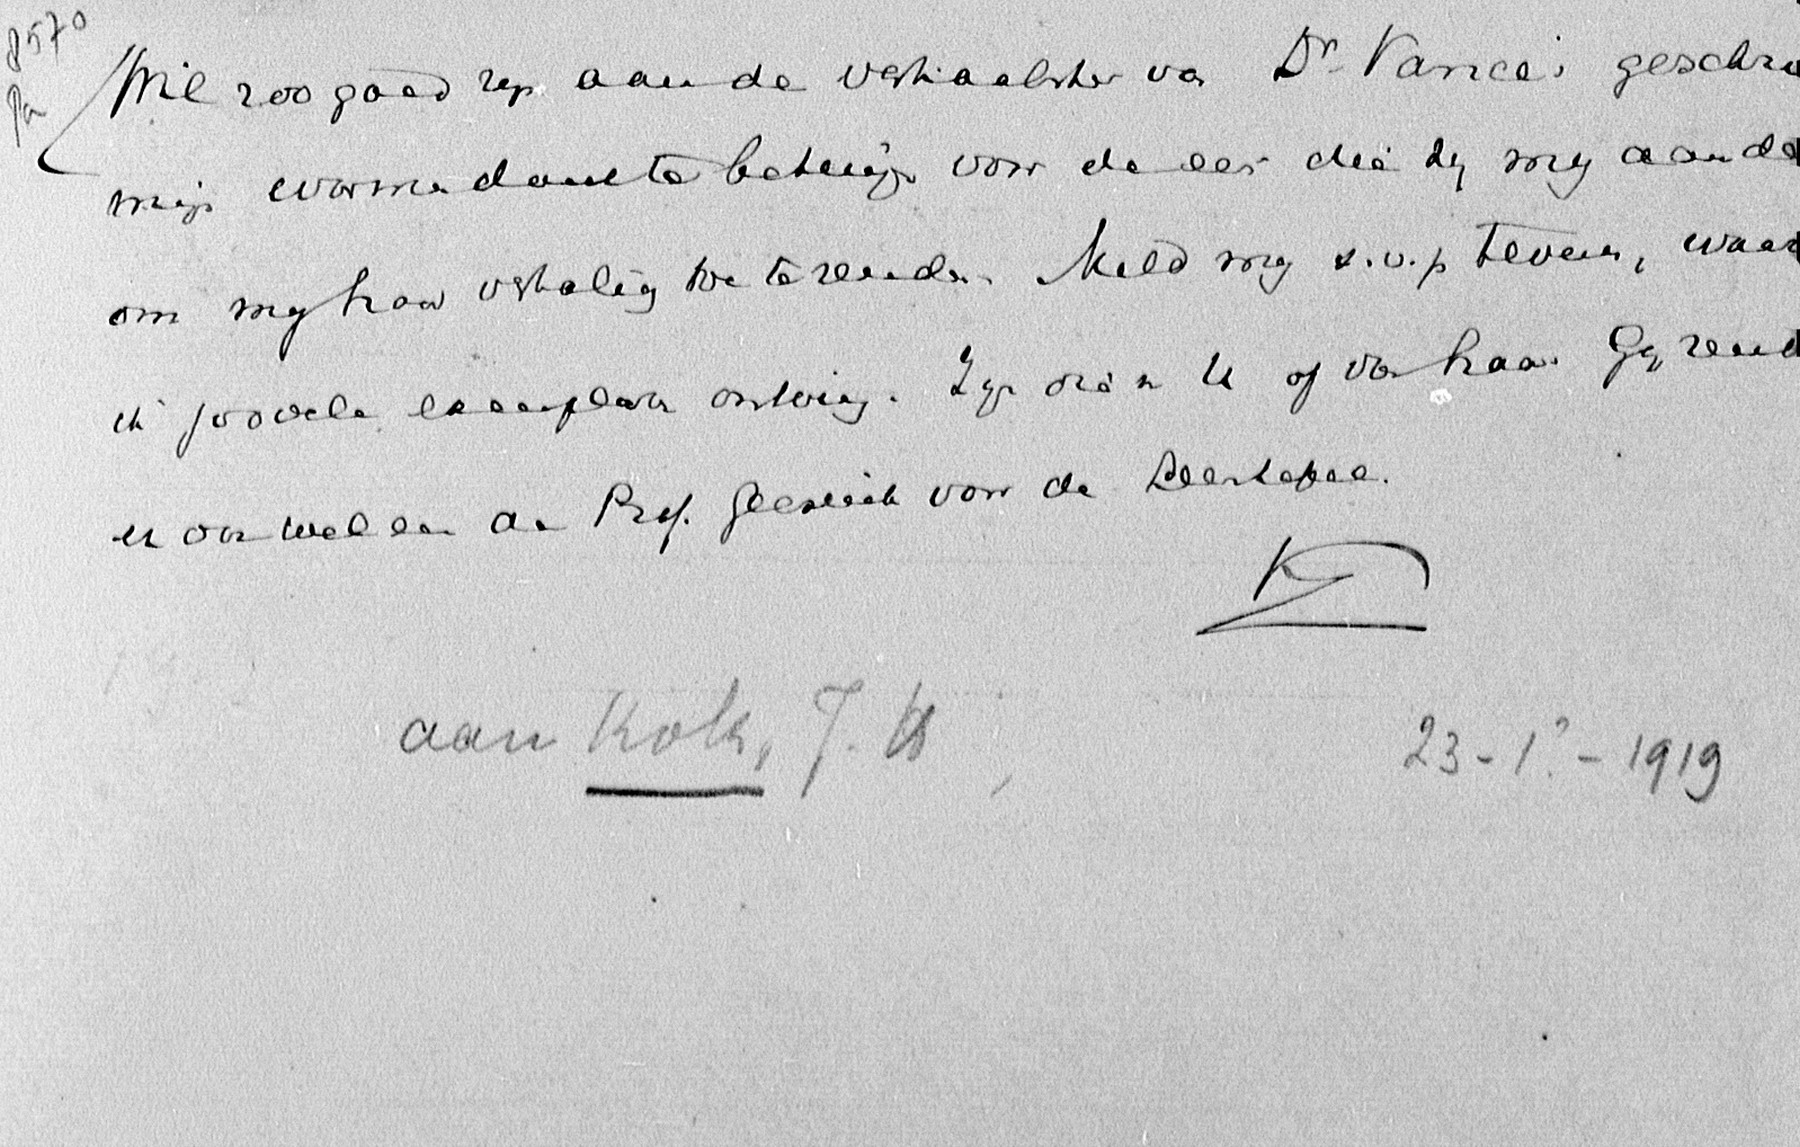 8570
Pa
Wil zoo goed zijn aan de vertaalster van Dr. Vance's geschr
mijn warmen dank te betuigen voor de eer die zij mij aande
om mij haar vertaling toe te zenden. Meld mij s.v.p. tevens, waar
ik zoovele exemplaren ontving. Zijn die v. U of van haar. Gij zend
er ook wel een an Prof. voor de
K
aan Kok, J. H,
23 - 1? - 1919